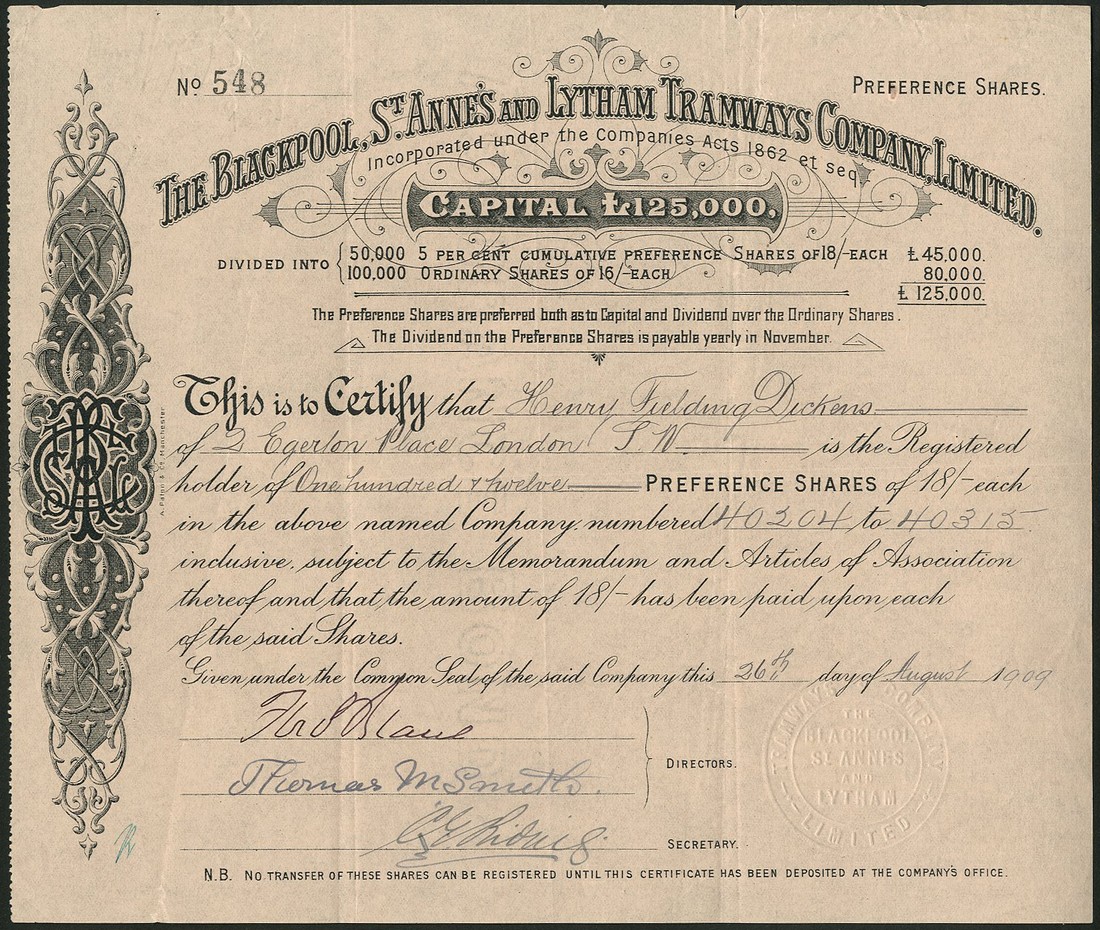 No 548
PREFERENCE SHARES.
THE BLACKPOOL, ST. ANNE'S AND LYTHAM TRAMWAYS COMPANY, LIMITED.
Incorporated under the Companies Acts 1862 et seq
CAPITAL £125,000.
DIVIDED INTO
50,000 5 PER CENT CUMULATIVE PREFERENCE SHARES OF 18/- EACH £45,000.
100,000 ORDINARY SHARES OF 16/- EACH 80,000.
£ 125,000.
The Preference Shares are preferred both as to Capital and Dividend over the Ordinary Shares.
The Dividend on the Preference Shares is payable yearly in November.
This is to Certify that Henry Fielding Dickens
of 2 Egerton Place London S W is the Registered
holder of One hundred & twelve PREFERENCE SHARES of 18/- each
in the above named Company, numbered 40204 to 40315
inclusive, subject to the Memorandum and Articles of Association
thereof, and that the amount of 18/- has been paid upon each
of the said Shares.
Given under the Common Seal of the said Company this 26th day of August 1909
Thomas M Smith.
DIRECTORS.
SECRETARY.
N.B. NO TRANSFER OF THESE SHARES CAN BE REGISTERED UNTIL THIS CERTIFICATE HAS BEEN DEPOSITED AT THE COMPANY'S OFFICE.
TRAMWAYS COMPANY
THE
BLACKPOOL
ST ANNES
AND
LYTHAM
LIMITED